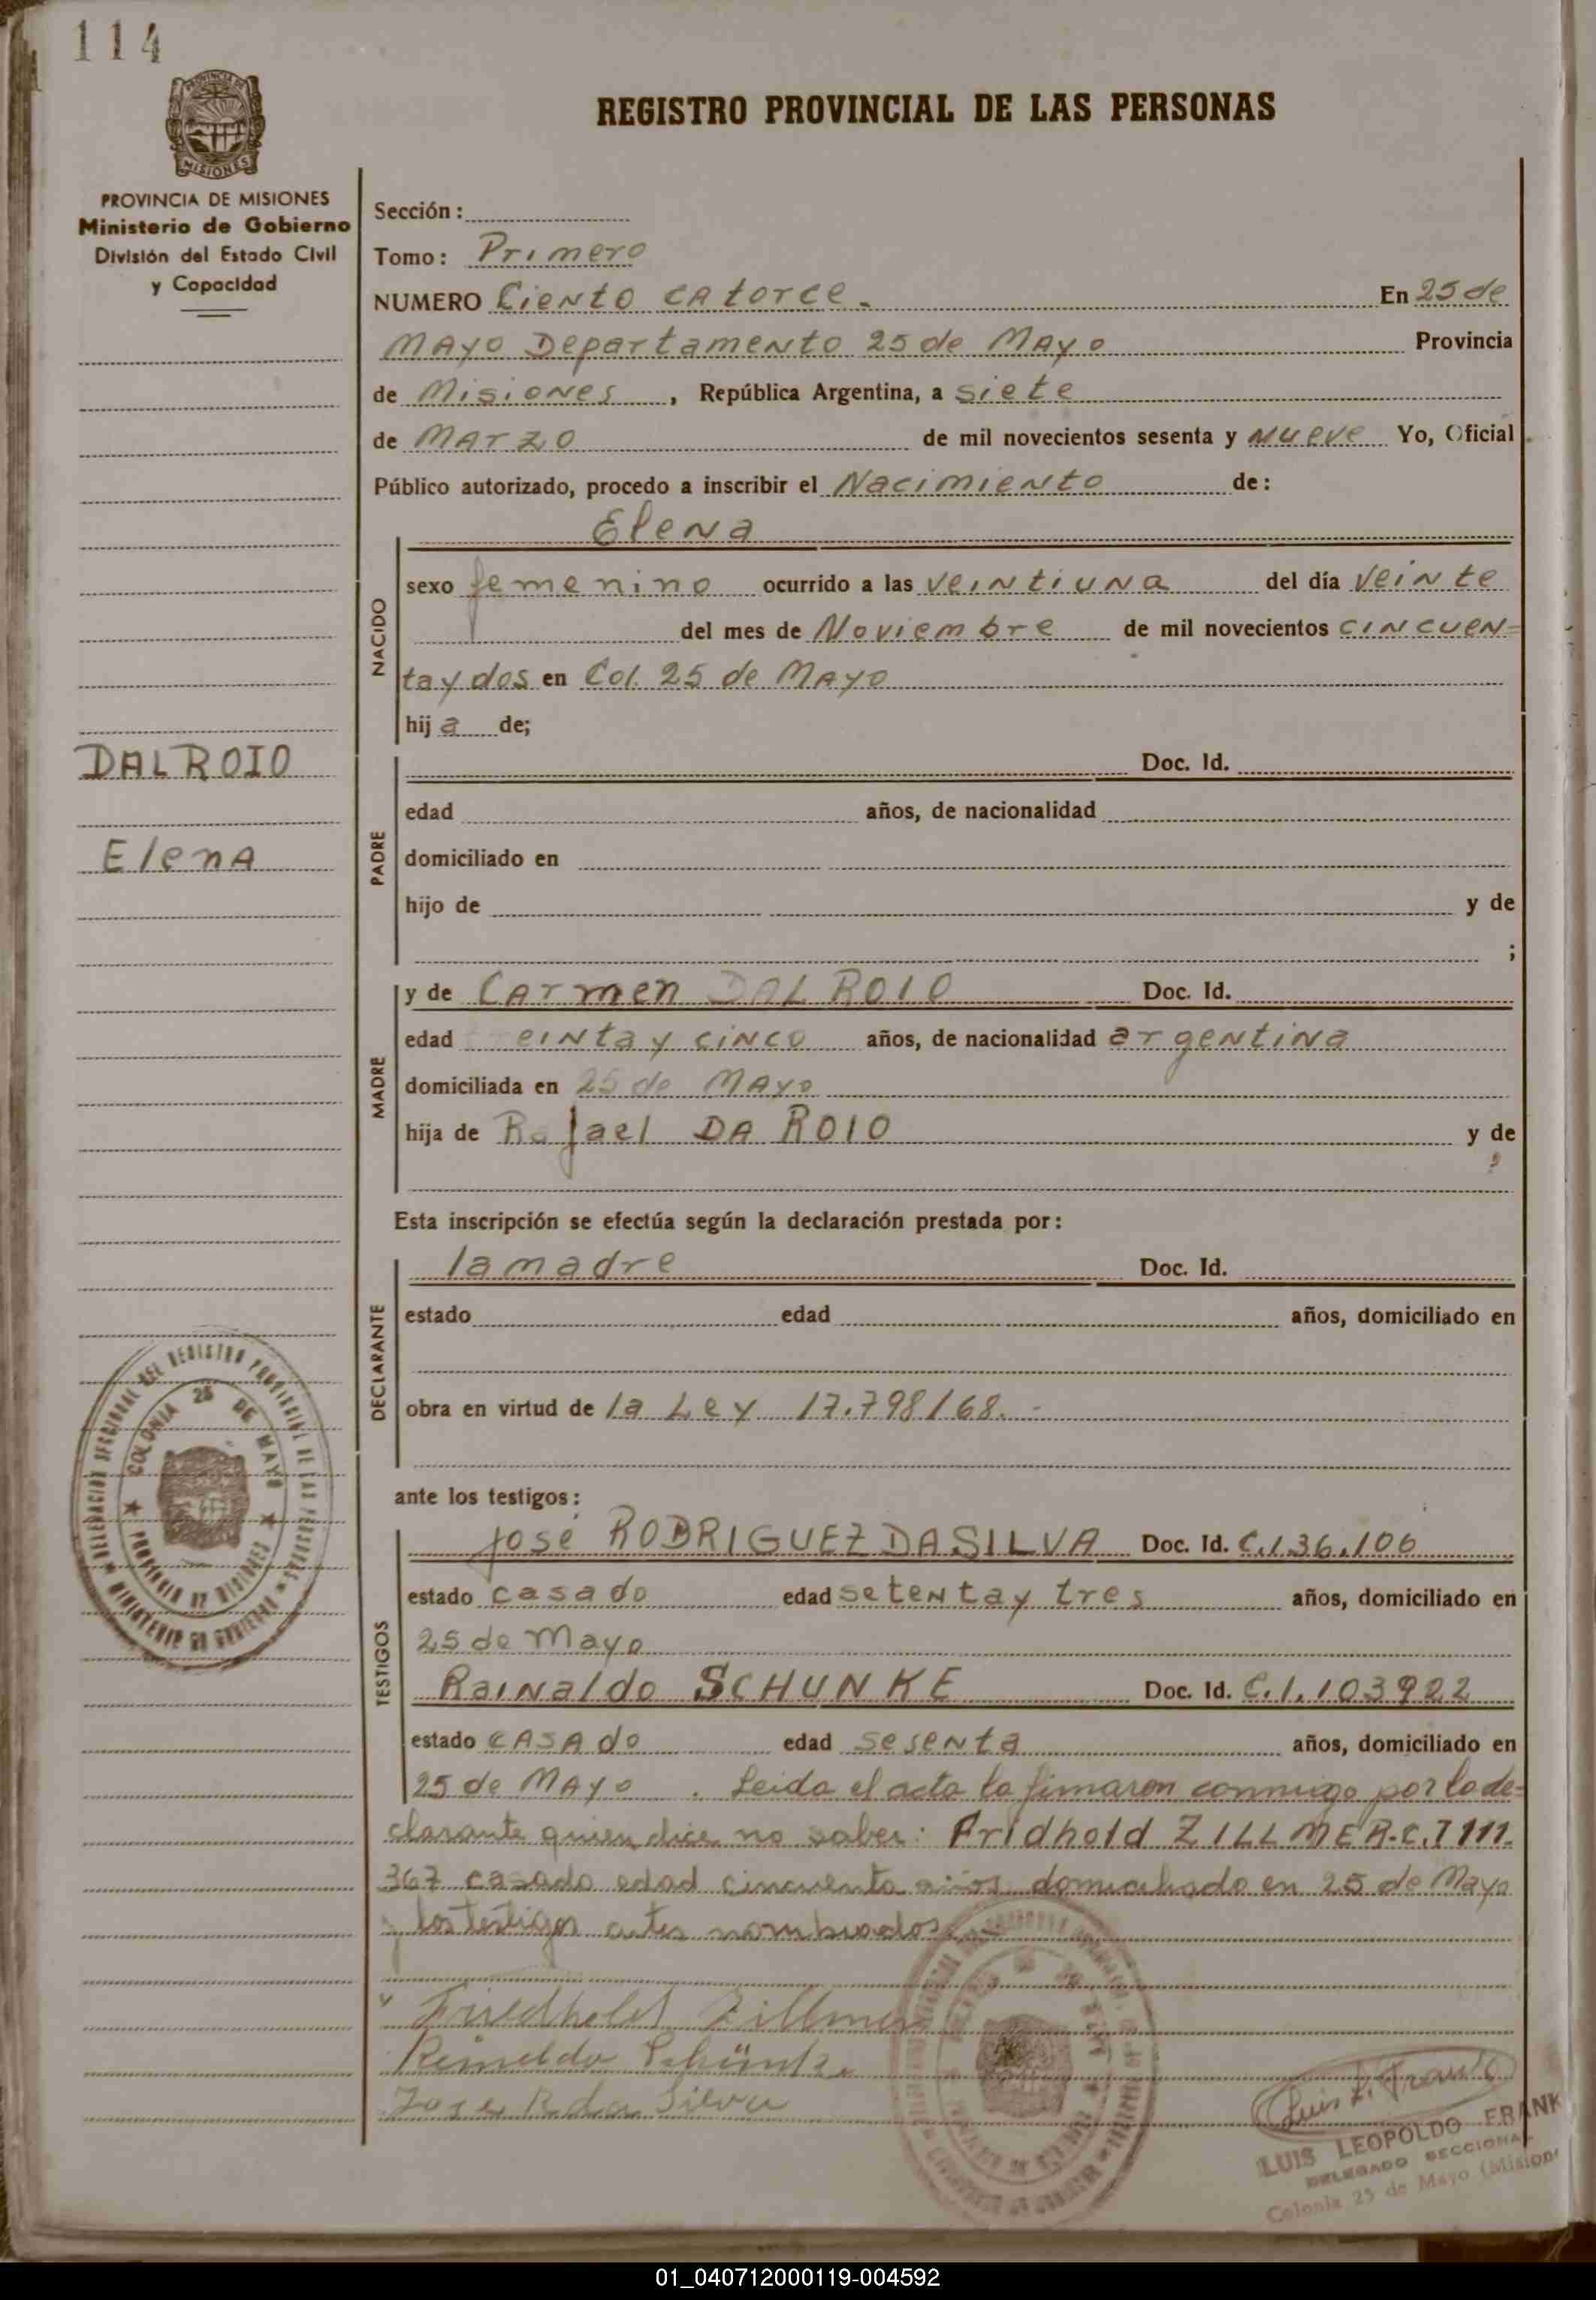 114
PROVINCIA DE
MISIONES
REGISTRO PROVINCIAL DE LAS PERSONAS
PROVINCIA DE MISIONES
Ministerio de Gobierno
División del Estado Civil
y Capacidad
Sección:
Tomo: Primero
NUMERO Ciento catorce. En 25 de
Mayo Departamento 25 de Mayo Provincia
de Misiones, República Argentina, a siete
de Marzo de mil novecientos sesenta y nueve Yo, Oficial
Público autorizado, procedo a inscribir el Nacimiento de:
NACIDO
Elena
sexo femenino ocurrido a las veintiuna del día veinte
del mes de Noviembre de mil novecientos cincuen-
ta y dos en Col. 25 de Mayo
hija de;
DAL ROIO
Elena
PADRE
Doc. Id.
edad años, de nacionalidad
domiciliado en
hijo de y de
;
MADRE
y de Carmen DAL ROIO Doc. Id.
edad einta y cinco años, de nacionalidad argentina
domiciliada en 25 de Mayo
hija de Rafael DA ROIO y de
Esta inscripción se efectúa según la declaración prestada por:
DECLARANTE
la madre Doc. Id.
estado edad años, domiciliado en
obra en virtud de la Ley 17.798/68.-
ante los testigos:
TESTIGOS
José RODRIGUEZ DASILVA Doc. Id. C.I.36.106
estado casado edad setenta y tres años, domiciliado en
25 de Mayo
Rainaldo SCHUNKE Doc. Id. C.I.103922
estado casado edad sesenta años, domiciliado en
25 de Mayo. Leida el acta la fimaron conmigo por la de-
clarante quien dice no saber: Fridhold ZILLMER.C.I 111.
367 casado edad cincuenta años domiciliado en 25 de Mayo
y los testigos antes nombrados
DELEGACION SECCIONAL DEL REGISTRO PROVINCIAL DE LAS PERSONAS
MINISTERIO DE GOBIERNO
COLONIA 25 DE MAYO
PROVINCIA DE MISIONES
Friedhold Zillmer
Reinaldo Schünke
Jose R da Silva
Luis L. Frank
LUIS LEOPOLDO FRANK
DELEGADO SECCIONAL
Colonia 25 de Mayo (Misiones
01_040712000119-004592